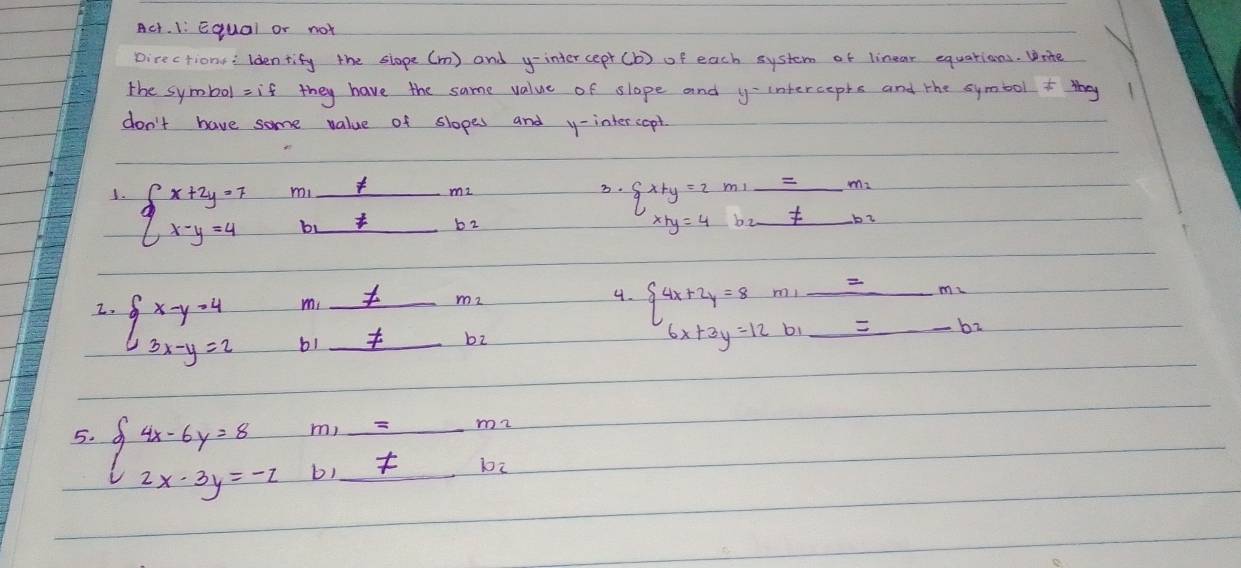 Act. 1: Equal or not
Directions: Identify the slope (m) and y-intercept (b) of each system of linear equations. Write
the symbol = if they have the same value of slope and y-intercepts and the symbol ≠ they
don't have same value of slopes and y-intercept.
1. { x+2y=7 m1 ≠ m2
x-y=4 b1 ≠ b2
3. { x+y=2 m1 = m2
x+y=4 b2 ≠ b2
2. { x-y=4 m1 ≠ m2
3x-y=2 b1 ≠ b2
4. { 4x+2y=8 m1 = m2
6x+3y=12 b1 = b2
5. { 4x-6y=8 m1 = m2
2x-3y=-2 b1 ≠ b2